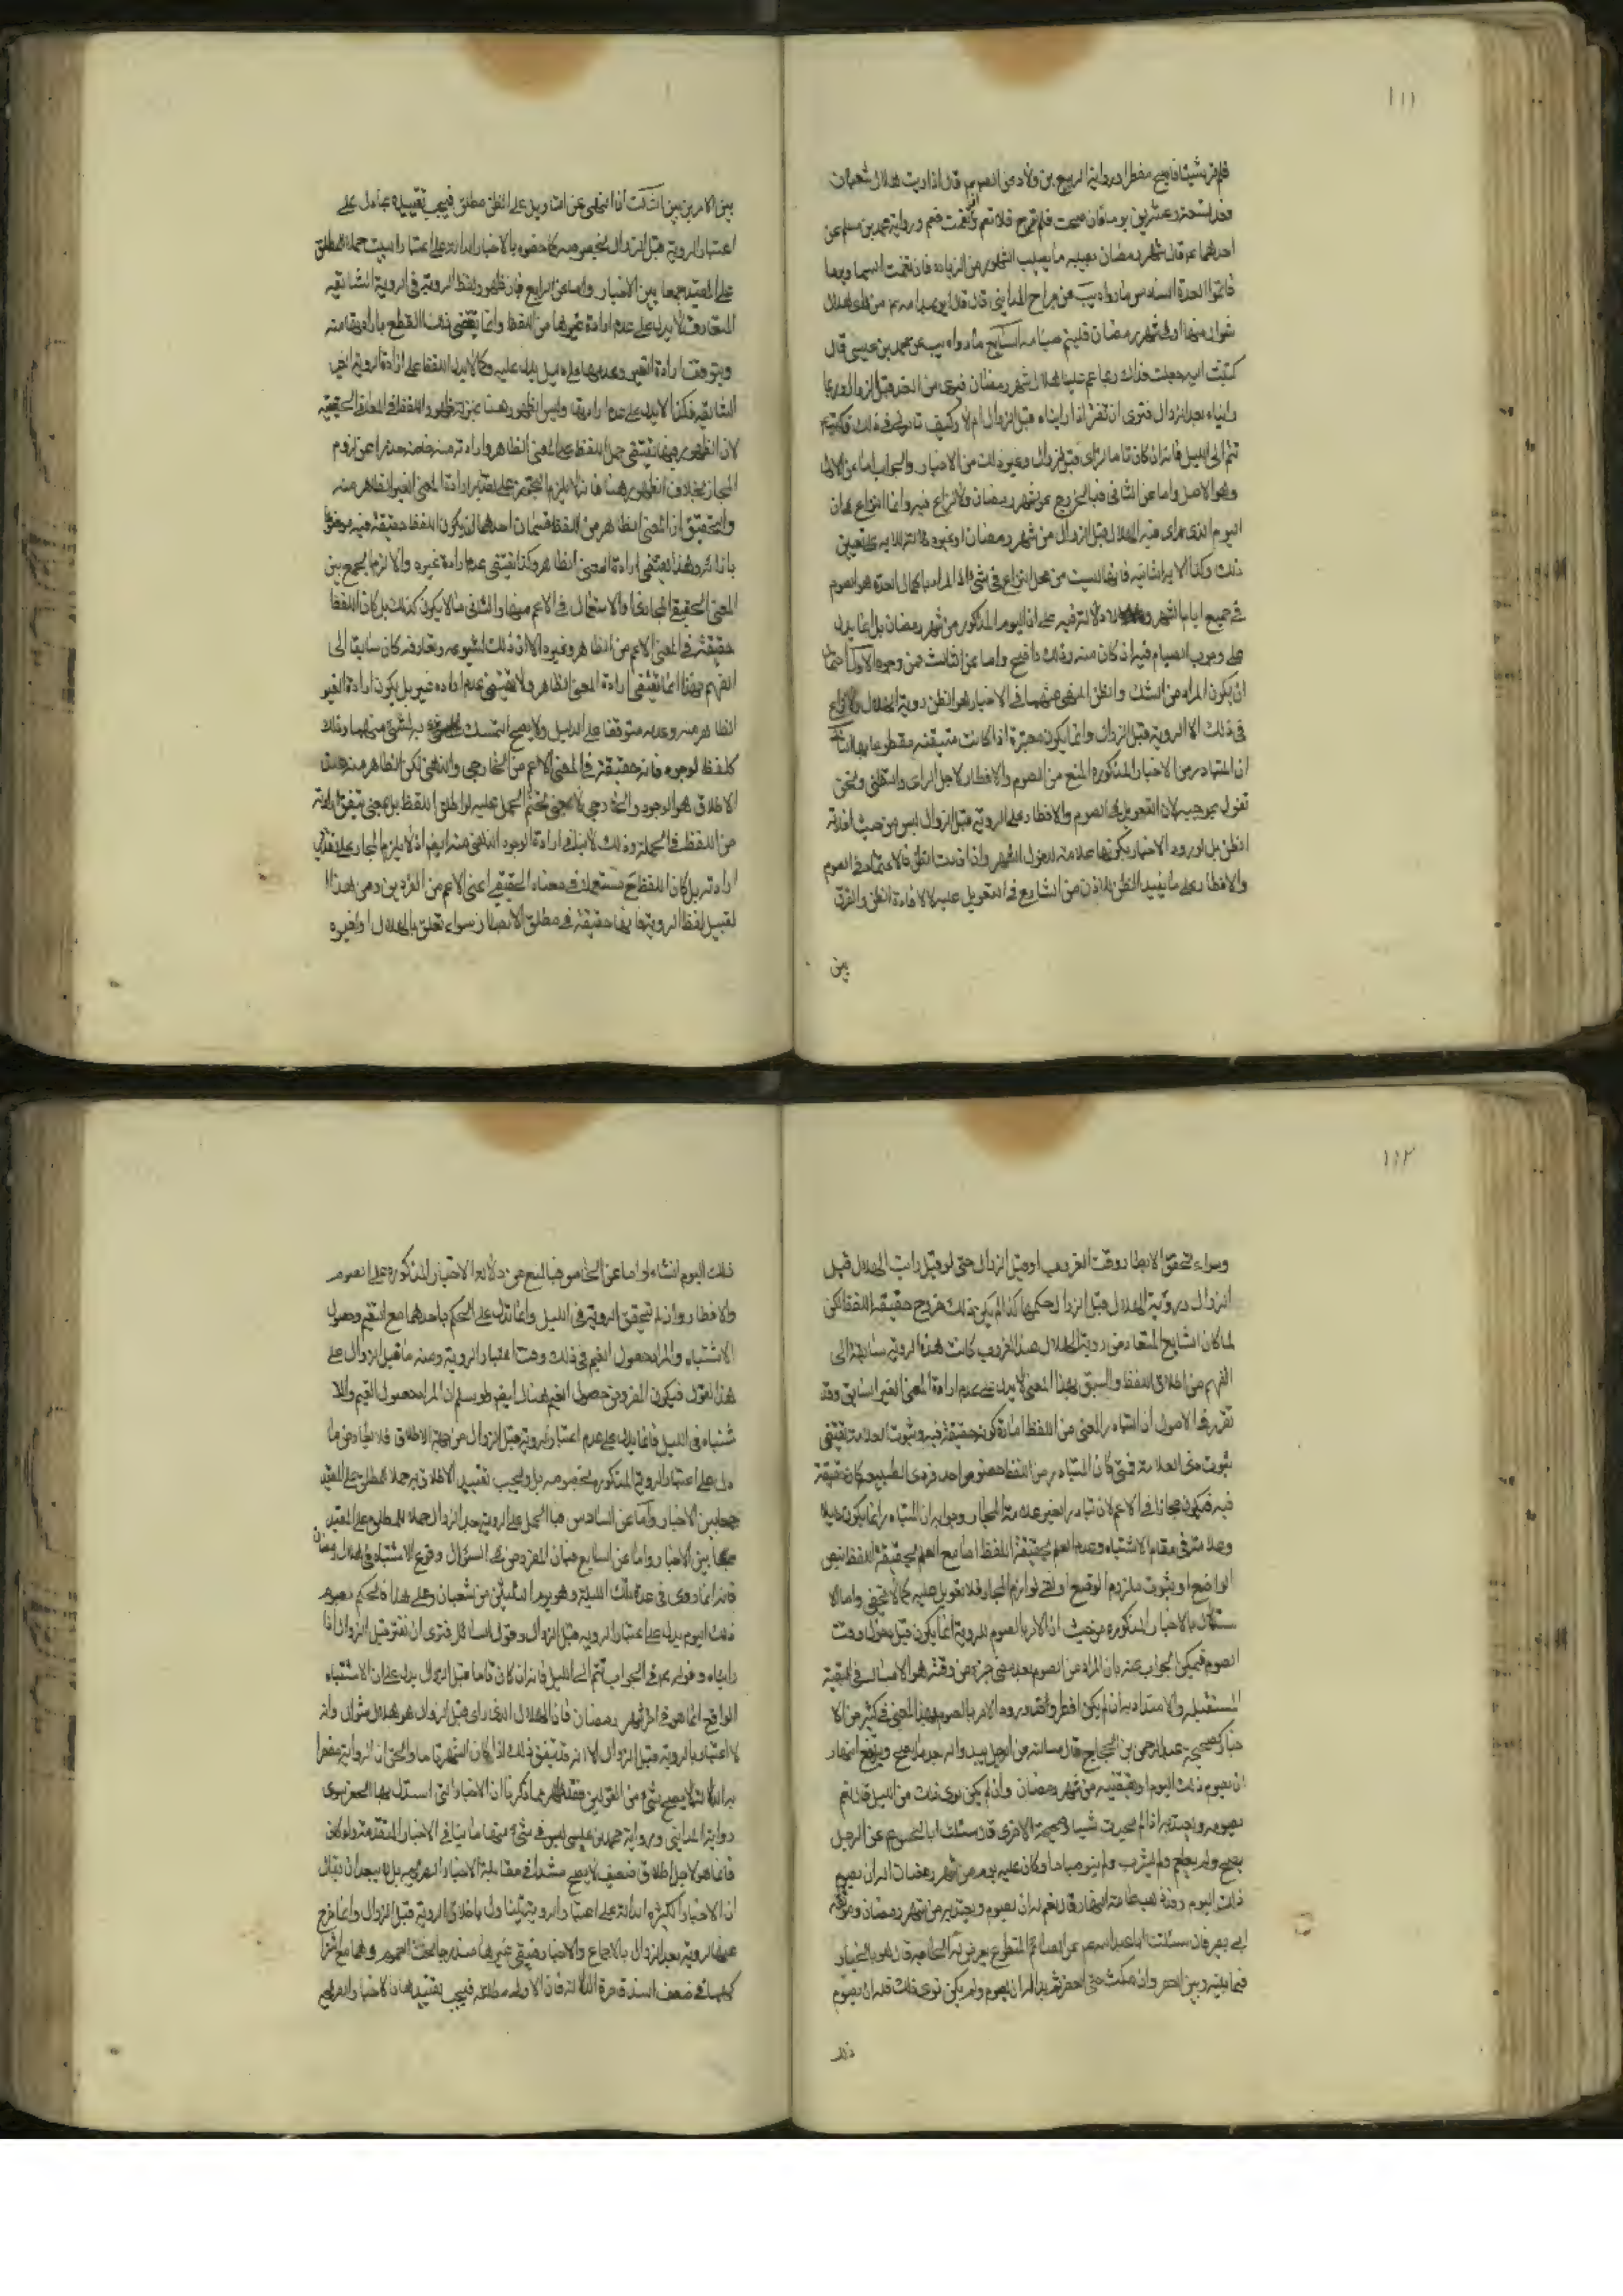 ١١١
فلم تر شيئا فاصبح مفطرا ورواية الربيع بن ولاد عن الصم قال اذا رايت هلال شعبان
فعد تسعة وعشرين يوما فان صحت فلم تره فلا تصم وان تغيمت فصم ورواية محمد بن مسلم عن
احدهما ع قال شهر رمضان يصيبه ما يصيب الشهور من الزيادة فان تغيمت السماء يوما
فاتموا العدة السادس ما رواه عن جراح المدايني قال قال ابو عبد الله من راى هلال
شوال نهارا في شهر رمضان فليتم صيامه السابع ما رواه يب عن محمد بن عيسى قال
كتبت اليه جعلت فداك ربما غم علينا هلال شهر رمضان فيرى من الغد قبل الزوال وربما
رايناه بعد الزوال فترى ان نفطر اذا رايناه قبل الزوال ام لا وكيف تامرني في ذلك فكتب
تتم الى الليل فانه ان كان تاما لرأى قبل الزوال وغير ذلك من الاخبار والجواب اما عن الاول
وهو الاصل واما عن الثاني فبالخروج عن شهر رمضان ولا نزاع فيه وانما النزاع في ان
اليوم الذي يرى فيه الهلال قبل الزوال من شهر رمضان او غيره فلا دلالة له على تعيين
ذلك وكذا الاية الثانية فانها ليست من محل النزاع في شيء اذ المراد باكمال العدة هو الصوم
في جميع ايام الشهر ولا دلالة فيه على ان اليوم المذكور من شهر رمضان بل انما يدل
على وجوب الصيام فيه اذ كان منه وذلك واضح واما عن الثالث فمن وجوه الاول احتمال
ان يكون المراد من الشك والظن المنهي عنهما في الاخبار هو الظن رؤية الهلال ولا نزاع
في ذلك الا الرؤية قبل الزوال وانما يكون معتبرة اذا كانت متيقنة مقطوعا بها الثاني
ان المتبادر من الاخبار المذكورة المنع من الصوم والافطار لاجل الراى والتظني ونحن
نقول بموجبه لان التعويل في الصوم والافطار على الرؤية قبل الزوال ليس من حيث افادته
الظن بل لورود الاخبار بكونها علامة لدخول الشهر واذا افادت الظن فالاعتماد في الصوم
والافطار على ما يفيد الظن للاذن من الشارع في التعويل عليه لا لافادة الظن والفرق
بين
بين الامرين بين الثالث اذ النهي عن التاويل على الظن مطلق فيجب تقييده بما دل على
اعتبار الرؤية قبل الزوال بخصوصه كما خصوه بالاخبار الدالة على اعتبار البينة حملا للمطلق
على المقيد جمعا بين الاخبار واما عن الرابع فبان ظهور لفظ الرؤية في الرؤية الشائعة
المتعارفة لا يدل على عدم ارادة غيرها من اللفظ وانما يقتضي ذلك القطع بارادتها منه
ويتوقف ارادة الغير وعدمها على دليل يدل عليه وكما لا يدل اللفظ على ارادة الرؤية الغير
الشائعة فكذا لا يدل على عدم ارادتها وليس الظهور هنا بمنزلة ظهور اللفظ في المعاني الحقيقية
لان الظهور فيها يقتضي حمل اللفظ على المعنى الظاهر وارادته منه خاصة حذرا عن لزوم
المجاز بخلاف الظهور هنا فانه لا يلزم التجوز على تقدير ارادة المعنى الغير الظاهر منه
والتحقيق ان المعنى الظاهر من اللفظ قسمان احدهما ان يكون اللفظ حقيقة فيه موضوعا
بازائه وهذا يقتضي ارادة المعنى الظاهر وكذا يقتضي عدم ارادة غيره والا لزم الجمع بين
المعنى الحقيقي والمجازي او الاستعمال في الاعم منهما والثاني ما لا يكون كذلك بل كان اللفظ
حقيقة في المعنى الاعم من الظاهر وغيره الا ان ذلك لشيوعه وتعارفه كان سابقا الى
الفهم وهذا انما يقتضي ارادة المعنى الظاهر ولا يقتضي عدم ارادة غيره بل يكون ارادة الغير
الظاهر منه وعدمه متوقفا على الدليل ولا يصح التمسك به لشيء منهما وذلك
كلفظ الوجود فانه حقيقة في المعنى الاعم من الخارجي والذهني لكن الظاهر منه عند
الاطلاق هو الوجود الخارجي لا بمعنى تحتم الحمل عليه لو اطلق اللفظ بل بمعنى تيقن ارادته
من اللفظ في الجملة وذلك لا ينافي ارادة الوجود الذهني منه ايضا اذ لا يلزم المجاز على تقدير
ارادته بل كان اللفظ ح مستعملا في معناه الحقيقي اعنى الاعم من الفردين ومن هذا
القبيل لفظ الرؤية فانها حقيقة في مطلق الابصار سواء تعلق بالهلال او غيره
١١٢
وسواء تحقق الابصار وقت الغروب او قبل الزوال حتى لو قيل رايت الهلال قبل
الزوال ورؤية الهلال قبل الزوال حكمها كذا لم يكن بذلك خروج حقيقة اللفظ لكن
لما كان الشايع المتعارف من رؤية الهلال عند الغروب كانت هذه الرؤية سابقة الى
الفهم من اطلاق اللفظ والسبق بهذا المعنى لا يدل على عدم ارادة المعنى الغير السابق وقد
تقرر في الاصول ان التبادر المعنى من اللفظ امارة كونه حقيقة فيه وثبوت العلامة يقتضي
ثبوت ذى العلامة فمتى كان المتبادر من اللفظ خصوص احد فردى الطبيعة كان حقيقة
فيه فيكون مجازا في الاعم لان تبادر الغير علامة المجاز وجوابه ان التبادر انما يكون دليلا
وعلامة في مقام الاشتباه وعدم العلم بحقيقة اللفظ اما مع العلم بحقيقة اللفظ بنص
الواضع او بثبوت ملزوم الوضع او نفي لوازم المجاز فلا تعويل عليه كما لا يخفى واما الا
ستدلال بالاخبار المذكورة من حيث ان الامر بالصوم للرؤية انما يكون قبل دخول وقت
الصوم فيمكن الجواب عنه بان المراد من الصوم بعد مضي جزء من وقته هو الامساك في البقية
المستقبلة والاعتداد به ان لم يكن افطر وقد ورد الامر بالصوم بهذا المعنى في كثير من الا
خبار كصحيحة عبد الرحمن بن الحجاج قال سالته عن الرجل يبدو له بعد ما يصبح ويرتفع النهار
ان يصوم ذلك اليوم ويقضيه من شهر رمضان وان لم يكن نوى ذلك من الليل قال نعم
يصومه ويعتد به اذا لم يحدث شيئا وصحيحة الاخرى قال سئلت ابا الحسن ع عن الرجل
يصبح ولم يطعم ولم يشرب ولم ينو صياما وكان عليه يوم من شهر رمضان اله ان يصوم
ذلك اليوم وقد ذهب عامة النهار قال نعم له ان يصوم ويعتد به من شهر رمضان وموثقة
ابي بصير قال سئلت ابا عبد الله ع عن الصائم المتطوع يعرض له الحاجة قال هو بالخيار
فيما بينه وبين العصر وان مكث حتى العصر ثم بدا له ان يصوم ولم يكن نوى ذلك فله ان يصوم
ذلك
ذلك اليوم انشاء الله واما عن الخامس فبالمنع عن دلالة الاخبار المذكورة على الصوم
والافطار وان لم يتحقق الرؤية في الليل وانما تدل على الحكم باحدهما مع الغيم وحصول
الاشتباه والمراد حصول الغيم في ذلك وقت اعتبار الرؤية ومنه ما قبل الزوال على
هذا القول فيكون المفروض حصول الغيم هناك ايضا ولو سلم ان المراد حصول الغيم والا
شتباه في الليل فانما يدل على عدم اعتبار الرؤية قبل الزوال من جهة الاطلاق فلا يعارض ما
دل على اعتبار الرؤية المذكورة بخصوصه بل ويجب تقييد الاطلاق به حملا للمطلق على المقيد
جمعا بين الاخبار واما عن السادس فبالحمل على الرؤية بعد الزوال حملا للمطلق على المقيد
جمعا بين الاخبار واما عن السابع فبان المفروض في السؤال وقوع الاشتباه في هلال رمضان
فانه انما روى في غد تلك الليلة وهو يوم الثلثين من شعبان وعلى هذا فالحكم بصوم
ذلك اليوم يدل على اعتبار الرؤية قبل الزوال وقول السائل فترى ان نفطر قبل الزوال اذا
رايناه وقوله ع في الجواب تتم الى الليل فانه ان كان تاما قبل الزوال يدل على ان الاشتباه
الواقع انما هو في اخر شهر رمضان فان الهلال الذي راى قبل الزوال هو هلال شوال وانه
لا اعتبار بالرؤية قبل الزوال الا انه قد يتفق ذلك اذا كان الشهر تاما والحق ان الرواية مضطربة
الدلالة لا يصح شيء من القولين فقد ظهر مما ذكرنا ان الاخبار التي استدل بها الخصم سوى
رواية المدايني ورواية محمد بن عيسى ليس في شيء منها ما ينافي الاخبار المتقدمة ولو كان
فانما هو لاجل اطلاق ضعيف لا يصح مثله في مقابلة الاخبار الصريحة بل لا يبعد ان يقال
ان الاخبار الكثيرة الدالة على اعتبار الرؤية يتناول باطلاق الرؤية قبل الزوال وانما خرج
عنها الرؤية بعد الزوال بالاجماع والاخبار فيبقى غيرها مندرجا تحت العموم وهما مع اشترا
كهما في ضعف السند قاصرة الدلالة فان الاولى مطلقة فيجب تقييدها بالاخبار الصريحة